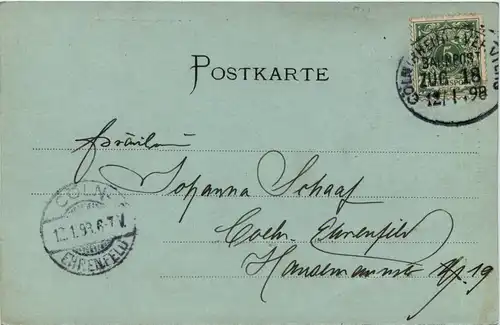 CÖLN
BAHNPOST
ZUG 18
12/1 98
POSTKARTE
Fräulein
Johanna Schaaf
Coeln-Ehrenfeld
Hansemannstr. 19
CÖLN
12.1.98.6-7.V.
EHRENFELD